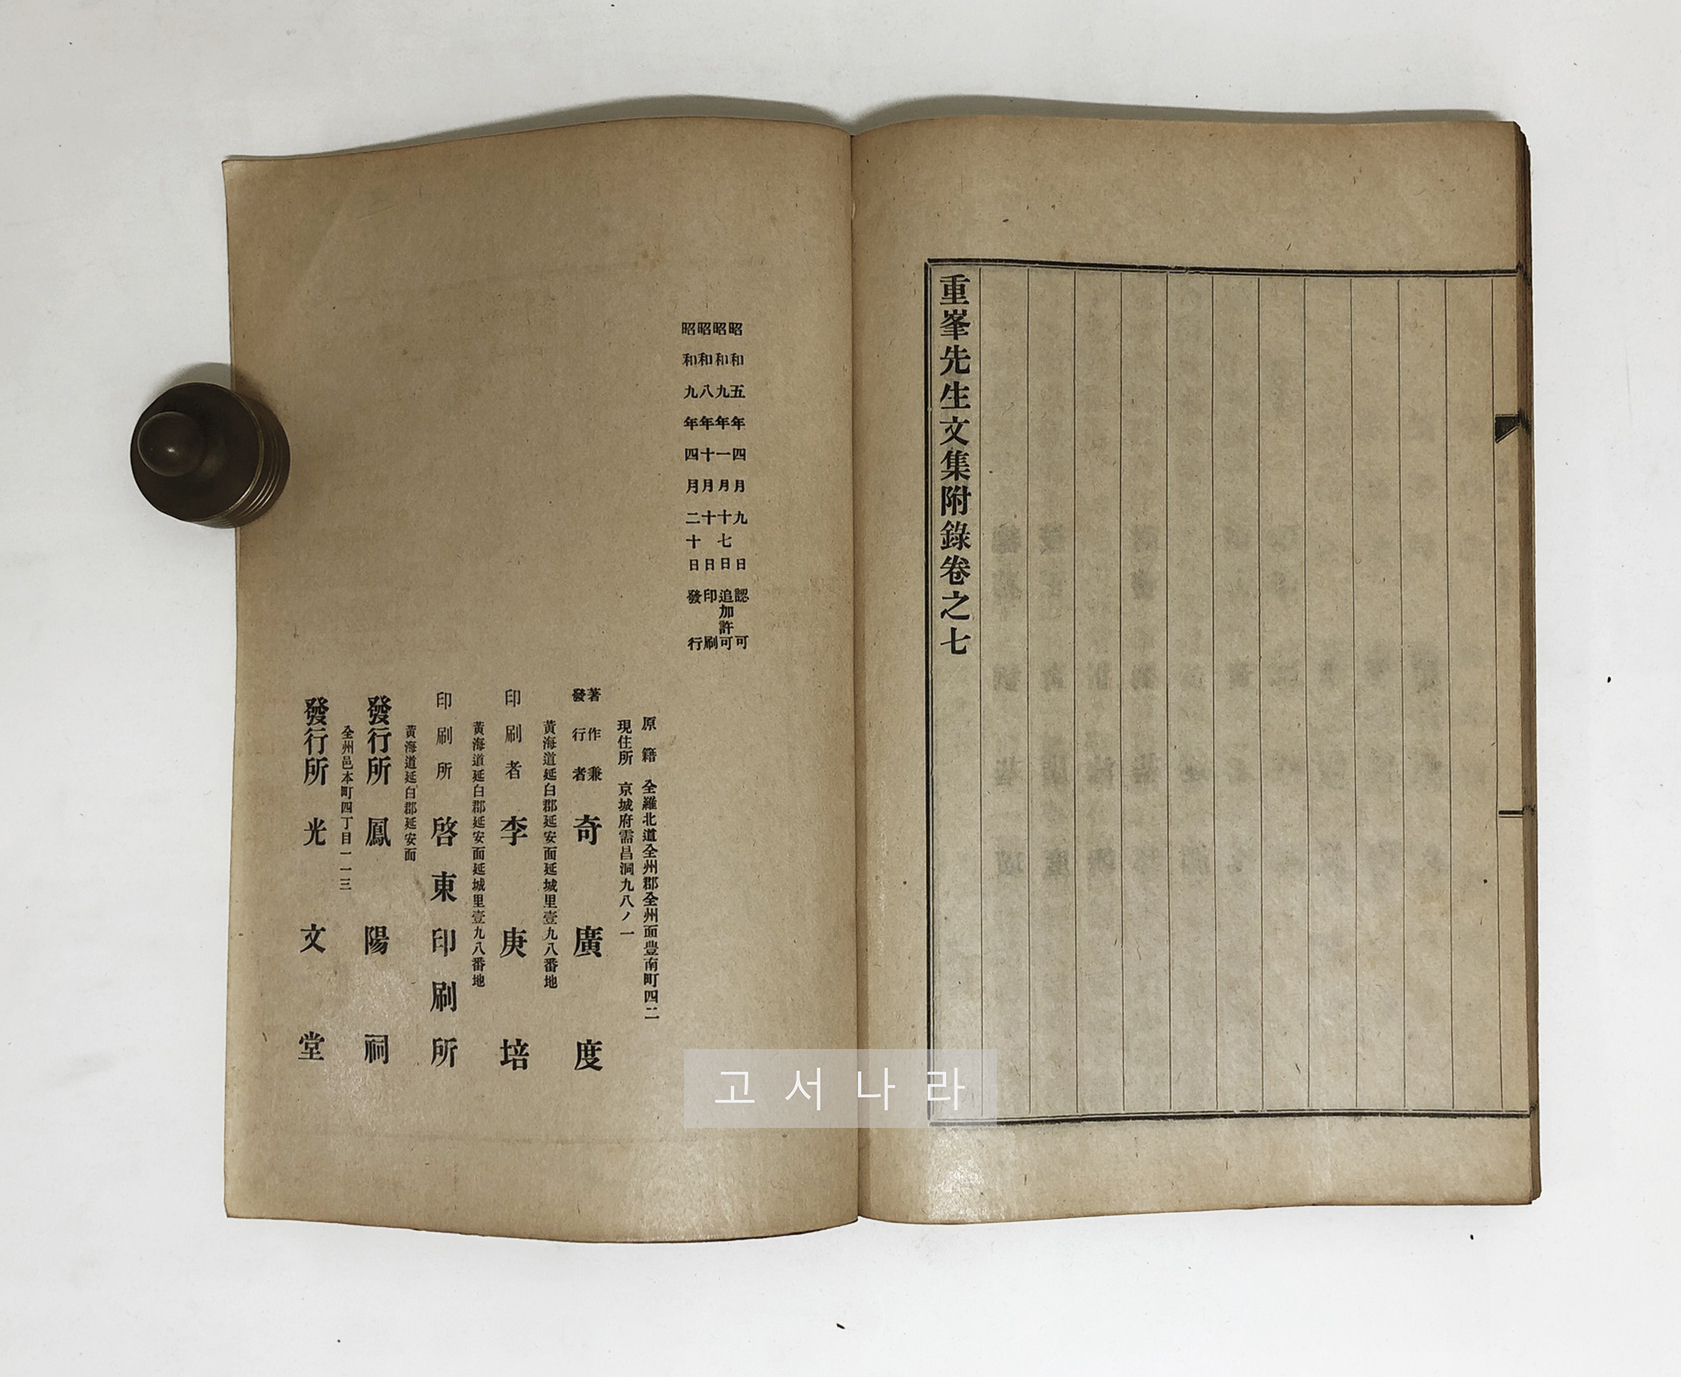 重峯先生文集附錄卷之七
昭和五年四月九日認可
昭和九年一月十七日追加許可
昭和八年十月十日印刷
昭和九年四月二十日發行
原籍 全羅北道全州郡全州面豊南町四二
現住所 京城府需昌洞九八ノ一
著作兼
發行者 奇廣度
黃海道延白郡延安面延城里壹九八番地
印刷者 李庚培
黃海道延白郡延安面延城里壹九八番地
印刷所 啓東印刷所
黃海道延白郡延安面
發行所 鳳陽祠
全州邑本町四丁目一一三
發行所 光文堂
고서나라